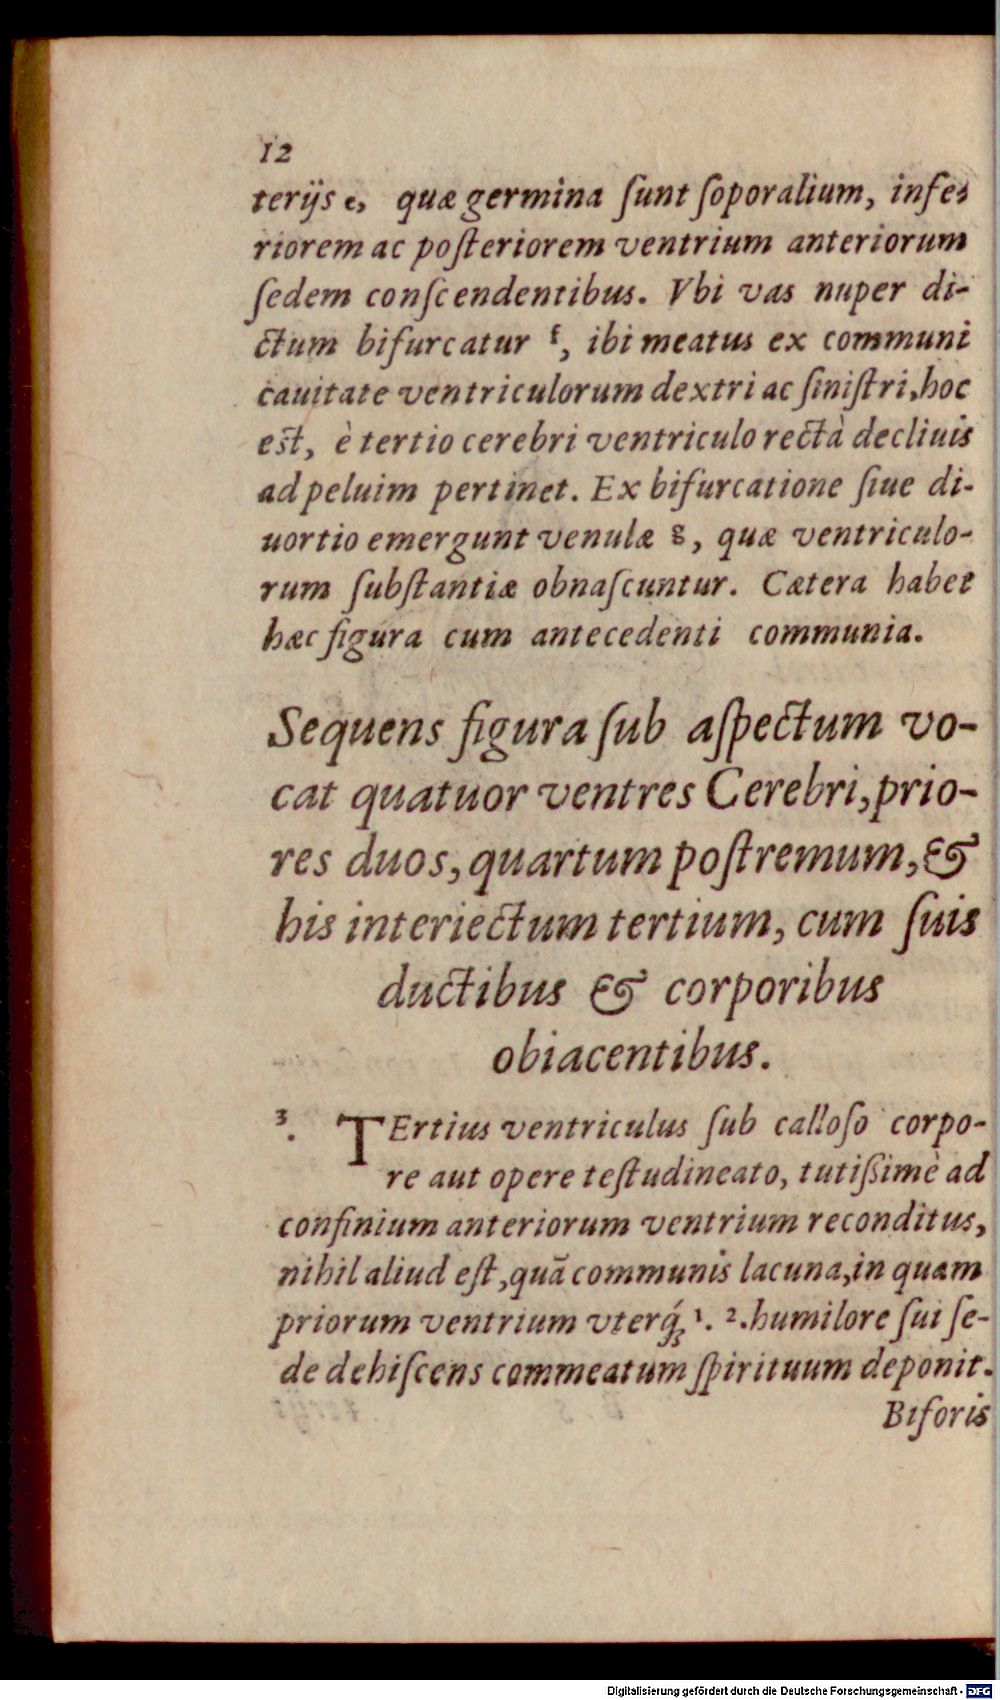 12
terijs e, quæ germina ſunt ſoporalium, infe-
riorem ac poſteriorem ventrium anteriorum
ſedem conſcendentibus. Vbi vas nuper di-
ctum bifurcatur f, ibi meatus ex communi
cauitate ventriculorum dextri ac ſiniſtri, hoc
est, è tertio cerebri ventriculo rectà decliuis
ad peluim pertinet. Ex bifurcatione ſiue di-
uortio emergunt venulæ g, quæ ventriculo-
rum ſubſtantiæ obnaſcuntur. Cætera habet
hæc figura cum antecedenti communia.
Sequens figura ſub aſpectum vo-
cat quatuor ventres Cerebri, prio-
res duos, quartum poſtremum, &
his interiectum tertium, cum ſuis
ductibus & corporibus
obiacentibus.
3. TErtius ventriculus ſub calloſo corpo-
re aut opere teſtudineato, tutißimè ad
confinium anteriorum ventrium reconditus,
nihil aliud eſt, quã communis lacuna, in quam
priorum ventrium vterq́ꝫ 1. 2. humilore ſui ſe-
de dehiſcens commeatum ſpirituum deponit.
Biforis
Digitalisierung gefördert durch die Deutsche Forschungsgemeinschaft - DFG